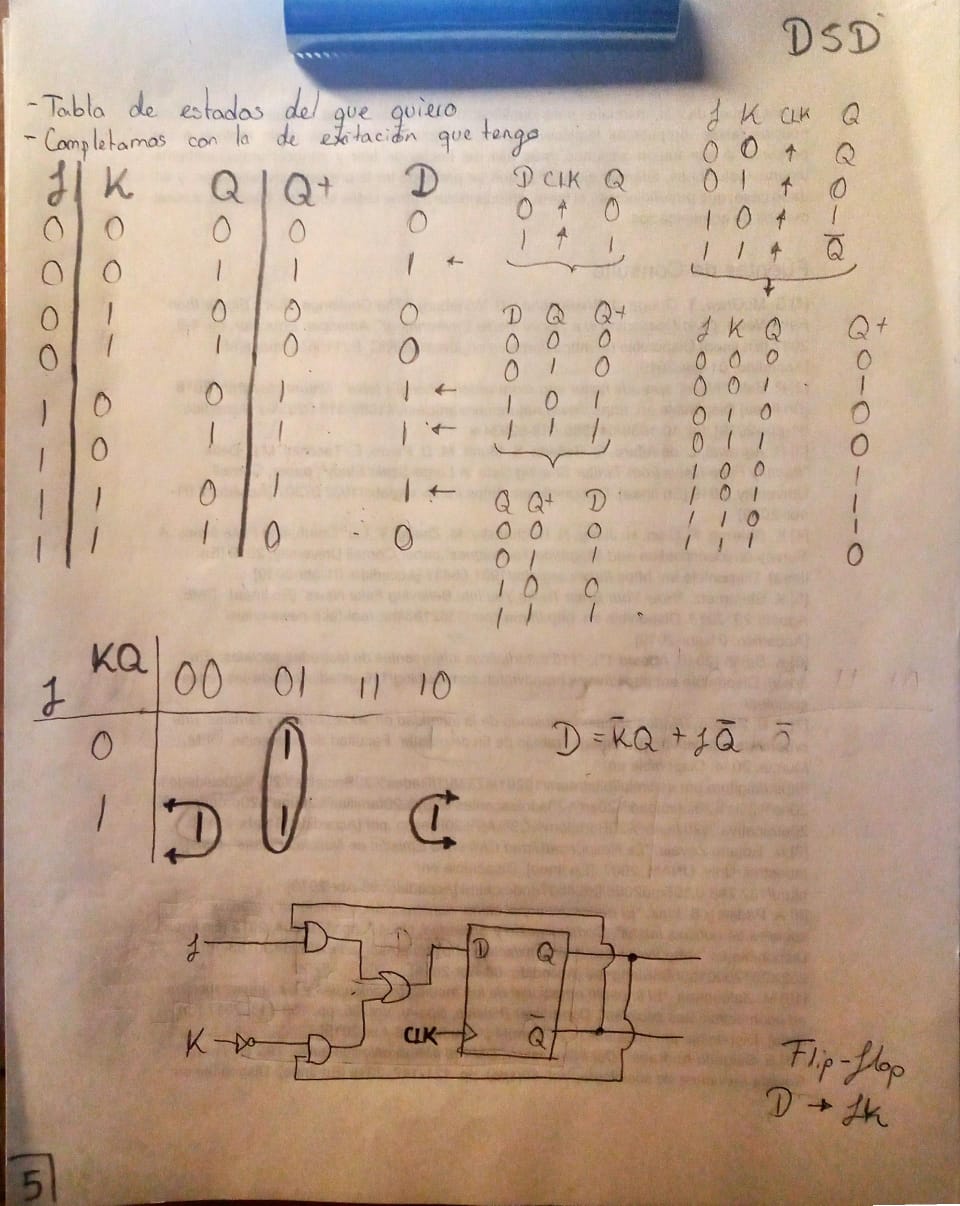 DSD
- Tabla de estados del que quiero
- Completamos con la de exitación que tengo
J K Q Q+ D
0 0 0 0 0
0 0 1 1 1 ←
0 1 0 0 0
0 1 1 0 0
1 0 0 1 1 ←
1 0 1 1 1 ←
1 1 0 1 1 ←
1 1 1 0 0
D CLK Q
0 ↑ 0
1 ↑ 1
D Q Q+
0 0 0
0 1 0
1 0 1
1 1 1
Q Q+ D
0 0 0
0 1 1
1 0 0
1 1 1
J K CLK Q
0 0 ↑ Q
0 1 ↑ 0
1 0 ↑ 1
1 1 ↑ Q̄
J K Q Q+
0 0 0 0
0 0 1 1
0 1 0 0
0 1 1 0
1 0 0 1
1 0 1 1
1 1 0 1
1 1 1 0
J KQ 00 01 11 10
0 1
1 1 1 1
D = K̄Q + JQ̄
J
K
D Q
CLK Q̄
Flip-flop
D → JK
5